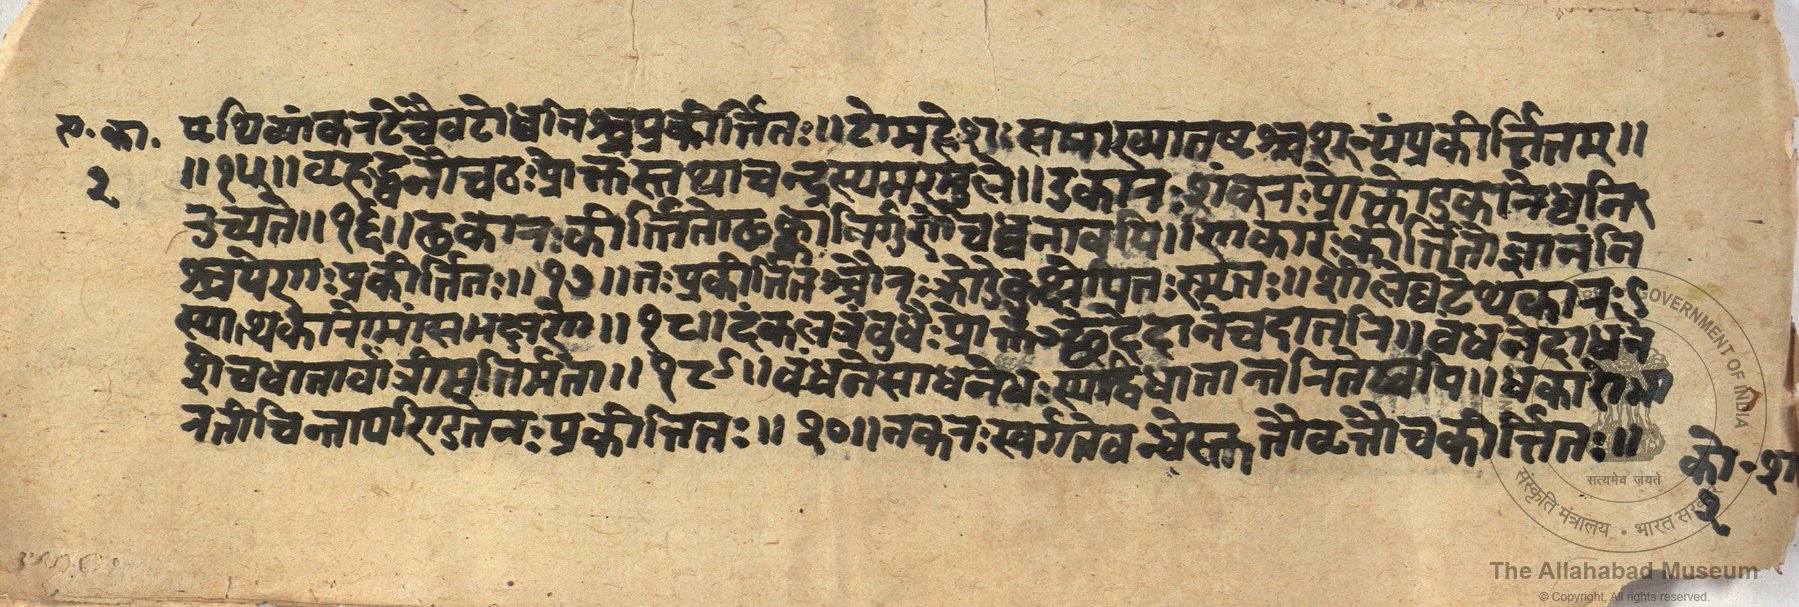 ए. का.
२
पृथिव्यांकरटेचैवटोध्वनिश्चप्रकीर्त्तितः॥टोमहेशः समाख्यातष्टश्चशून्यंप्रकीर्त्तितम्॥
॥१५॥वृहद्ध्वनौचठःप्रोक्तस्तथाचन्द्रस्यमण्डले॥डकारःशंकरःप्रोक्तोडकारोध्वनि
रुच्यते॥१६॥ढकारःकीर्त्तितोढक्कानिर्गुणेचध्वनावपि॥णकारःकीर्त्तितोज्ञानंनि
श्चयेरणःप्रकीर्त्तितः॥१७॥तःप्रकीर्त्तितश्चौरःक्रोडेपुच्छेपितःस्मृतः॥शीलेघटेथकारःऽ
स्या थकारोमांसभक्षणे॥१८॥दंकलत्रंबुधैःप्रोक्तंछेदेदानेचदातरि॥बंधनेदाधने
धीचधातावांत्रीसुतिर्मता॥१९॥बंधनेसाधनेधःस्याद्विधातान्तरितेष्वपि॥धकारोम
रतीचिन्तापण्डितेनःप्रकीर्त्तितः॥२०॥नकरःस्वर्गतेबन्धेस्तुतौवृत्तौचकीर्त्तितः॥
को. शा
२
GOVERNMENT OF INDIA
सत्यमेव जयते
संस्कृति मंत्रालय • भारत सरकार
The Allahabad Museum
© Copyright, All rights reserved.